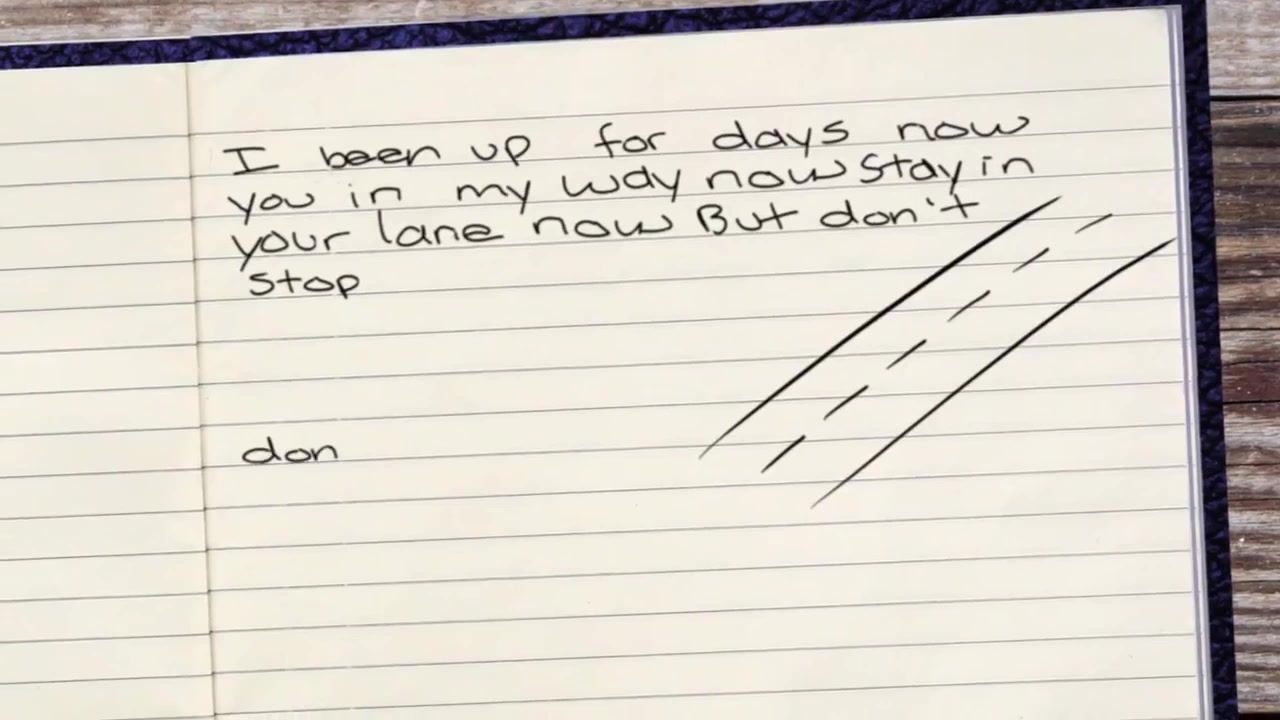 I been up for days now
you in my way now Stay in
your lane now But don't
stop
don